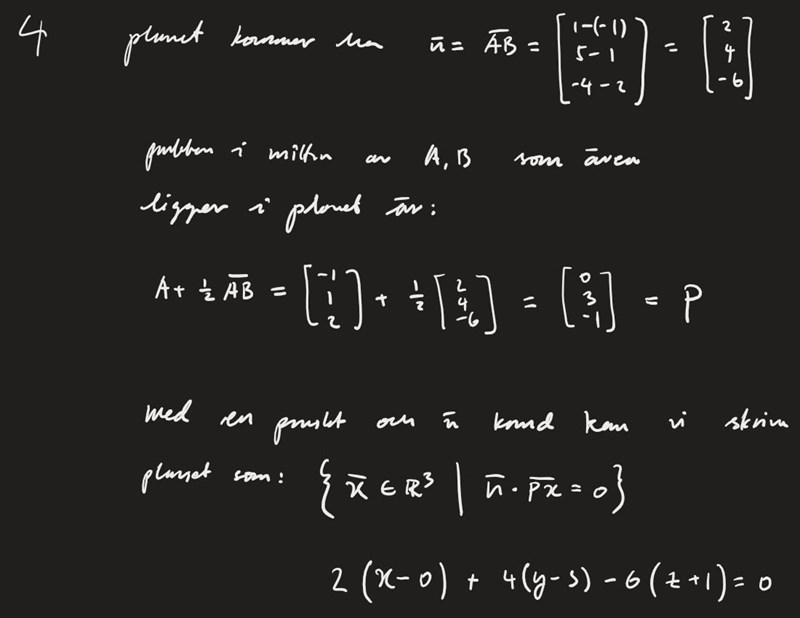 4 planet kommer ha n̄ = A̅B̅ = [1-(-1) 5-1 -4-2] = [2 4 -6]
punkten i mitten av A, B som även
ligger i planet är:
A + ½ A̅B̅ = [-1 1 2] + ½ [2 4 -6] = [0 3 -1] = P
med en punkt och n̄ känd kan vi skriva
planet som: { x̄ ∈ ℝ³ | n̄ · P̅x̅ = 0 }
2(x-0) + 4(y-3) - 6(z+1) = 0